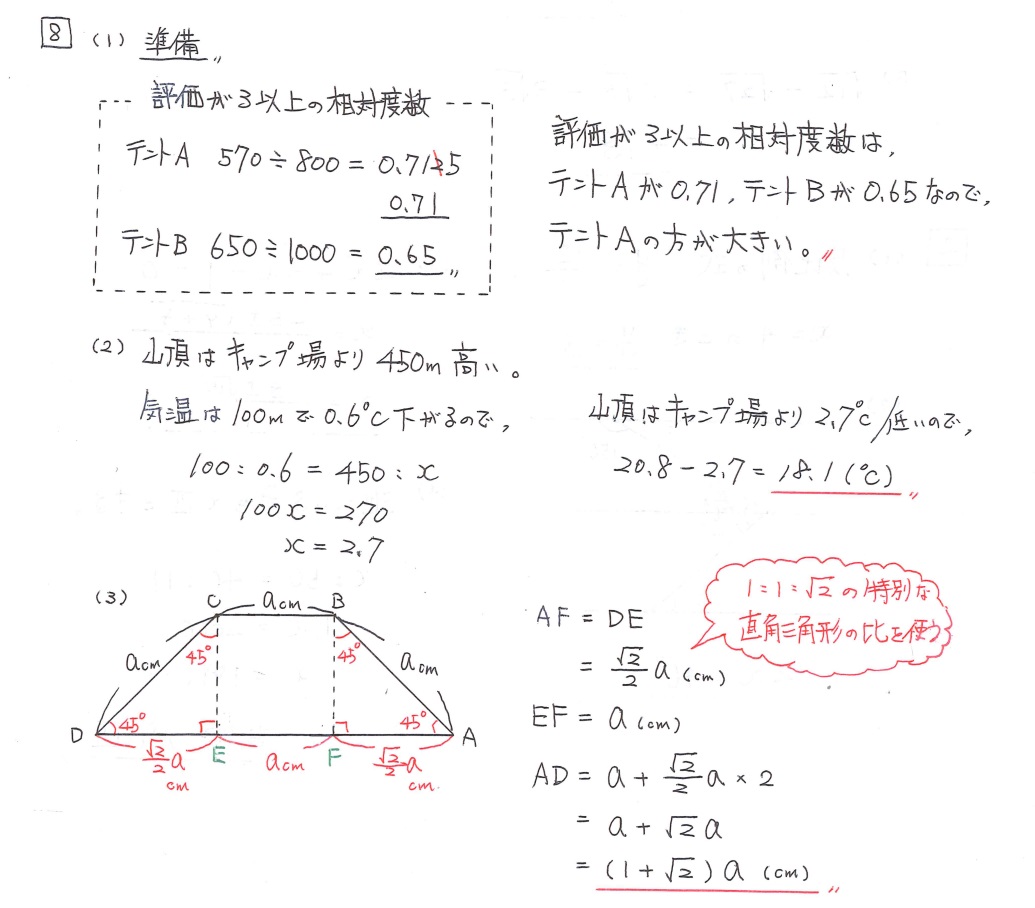 8 (1) 準備
評価が3以上の相対度数
テントA 570÷800 = 0.7125
0.71
テントB 650÷1000 = 0.65
評価が3以上の相対度数は,
テントAが0.71, テントBが0.65なので,
テントAの方が大きい。
(2) 山頂はキャンプ場より450m高い。
気温は100mで0.6℃下がるので,
100:0.6 = 450:x
100x = 270
x = 2.7
山頂はキャンプ場より2.7℃低いので,
20.8 − 2.7 = 18.1 (℃)
(3)
C acm B
45° 45°
acm acm
D 45° 45° A
√2/2 a cm E acm F √2/2 a cm
AF = DE
= √2/2 a (cm)
EF = a (cm)
AD = a + √2/2 a × 2
= a + √2 a
= (1 + √2) a (cm)
1:1:√2の特別な
直角三角形の比を使う